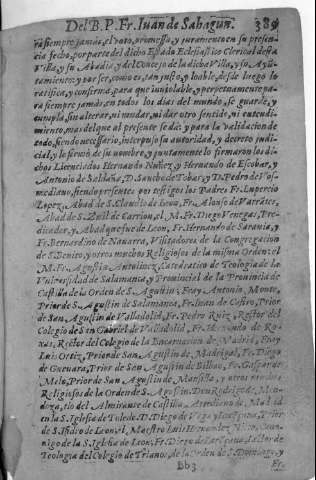 Del B. P. Fr. Iuan de Sahagun. 389
ra siempre jamas, el voto, promessa, y juramento en su presen-
cia fecho, por parte del dicho Estado Eclesiastico Clerical desta
Villa, y su Abadia, y del Concejo de la dicha Villa, y su Ayũ-
tamiento; y por ser, como es, tan justo, y loable, desde luego lo
ratifica, y confirma, para que inuiolable, y perpetuamente pa-
ra siempre jamas, en todos los dias del mundo, se guarde, y
cumpla, sin alterar, ni mudar, ni dar otro sentido, ni entendi-
miento, mas del que al presente se dà: y para la validacion de
todo, siendo necessario, interpuso su autoridad, y decreto judi-
cial, y lo firmò de su nombre, y juntamente lo firmaron los di-
chos Licenciados Hernando Nuñez, y Hernando de Escobar, y
Antonio de Saldaña, D. Sancho de Tobar, y D. Pedro de Vos-
mediano, siendo presentes por testigos los Padres Fr. Lupercio
Lopez, Abad de S. Claudio de Leon, Fr. Alonso de
Abad de S. Zoil de Carrion, el M. Fr. Diego Venegas, Pre-
dicador, y Abad que fue de Leon, Fr. Hernando de Sarauia, y
Fr. Bernardino de Nauarra, Visitadores de la Congregacion
de S. Benito, y otros muchos Religiosos de la misma Orden: el
M. Fr. Agustin Antolinez, Catedratico de Teologia de la
Vniuersidad de Salamanca, y Prouincial de la Prouincia de
Castilla de la Orden de S. Agustin; Fray Antonio Monte,
Prior de S. Agustin de Salamanca, Fr. Iuan de Castro, Prior
de San Agustin de Valladolid, Fr. Pedro Ruiz, Retor del
Colegio de S. Gabriel de Valladolid, Fr. Hernando de Ro-
xas, Rector del Colegio de la Encarnacion de Madrid, Fray
Luis Ortiz, Prior de San Agustin de Madrigal, Fr. Diego
de Gueuara, Prior de San Agustin de Bilbao, Fr. Gaspar de
Melo, Prior de San Agustin de Mansilla, y otros muchos
Religiosos de la Orden de S. Agustin, Don Rodrigo de Men-
doza, tio del Almirante de Castilla, Arcediano de Madrid
en la S. Iglesia de Toledo, D. Diego de Vega y Prior
de S. Isidro de Leon, el Maestro Luis Hernandez Canó-
nigo de la S. Iglesia de Leon, Fr. Diego de Lector de
Teologia del Colegio de Trianos, de la Orden de S. Domingo, y
Bb3 Fr.